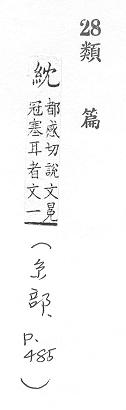 28類篇
紞
都感切說文冕
冠塞耳者文一
（糸部、p.485）